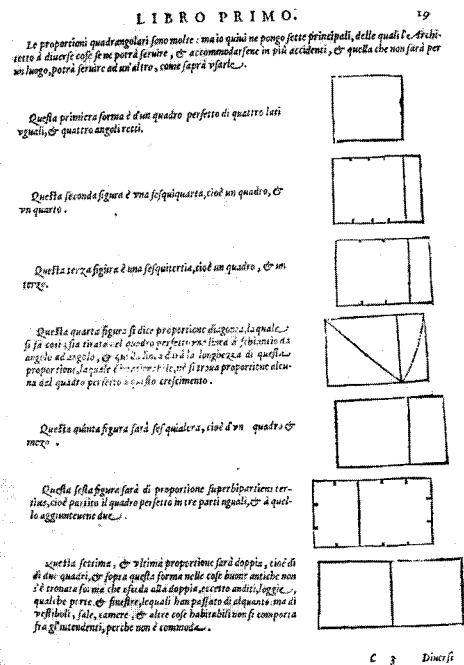 LIBRO PRIMO. 19
Le proportioni quadrangolari sono molte: ma io quiui ne pongo sette principali, delle quali l'Archi-
tetto à diuerse cose se ne potrà seruire, & accommodarsene in più accidenti, & quella che non sarà per
un luogo, potrà seruire ad un'altro, come saprà vsarle.
Questa primiera forma è d'un quadro perfetto di quattro lati
vguali, & quattro angoli retti.
Questa seconda figura è vna sesquiquarta, cioè un quadro, &
vn quarto.
Questa terza figura è una sesquitertia, cioè un quadro, & un
terzo.
Questa quarta figura si dice proportione diagonea, laquale
si fà così: sia tirata nel quadro perfetto una linea da
angolo ad angolo, & la longhezza di questa
proportione, laquale è nè si troua proportione alcu-
na dal quadro perfetto à questo crescimento.
Questa quinta figura sarà sesquialtera, cioè d'vn quadro &
mezo.
Questa sesta figura sarà di proportione superbipartiens ter-
tias, cioè partito il quadro perfetto in tre parti uguali, & à quel-
lo aggiuntouene due.
Questa settima, & vltima proportione sarà doppia, cioè di
di due quadri, & sopra questa forma nelle cose buone antiche non
s'è trouata forma che esceda alla doppia, eccetto anditi, loggie,
qualche porte, & finestre, lequali han passato di alquanto: ma di
vestiboli, sale, camere, & altre cose habitabili non si comporta
fra gl'intendenti, perche non è commoda.
C 3 Diuersi